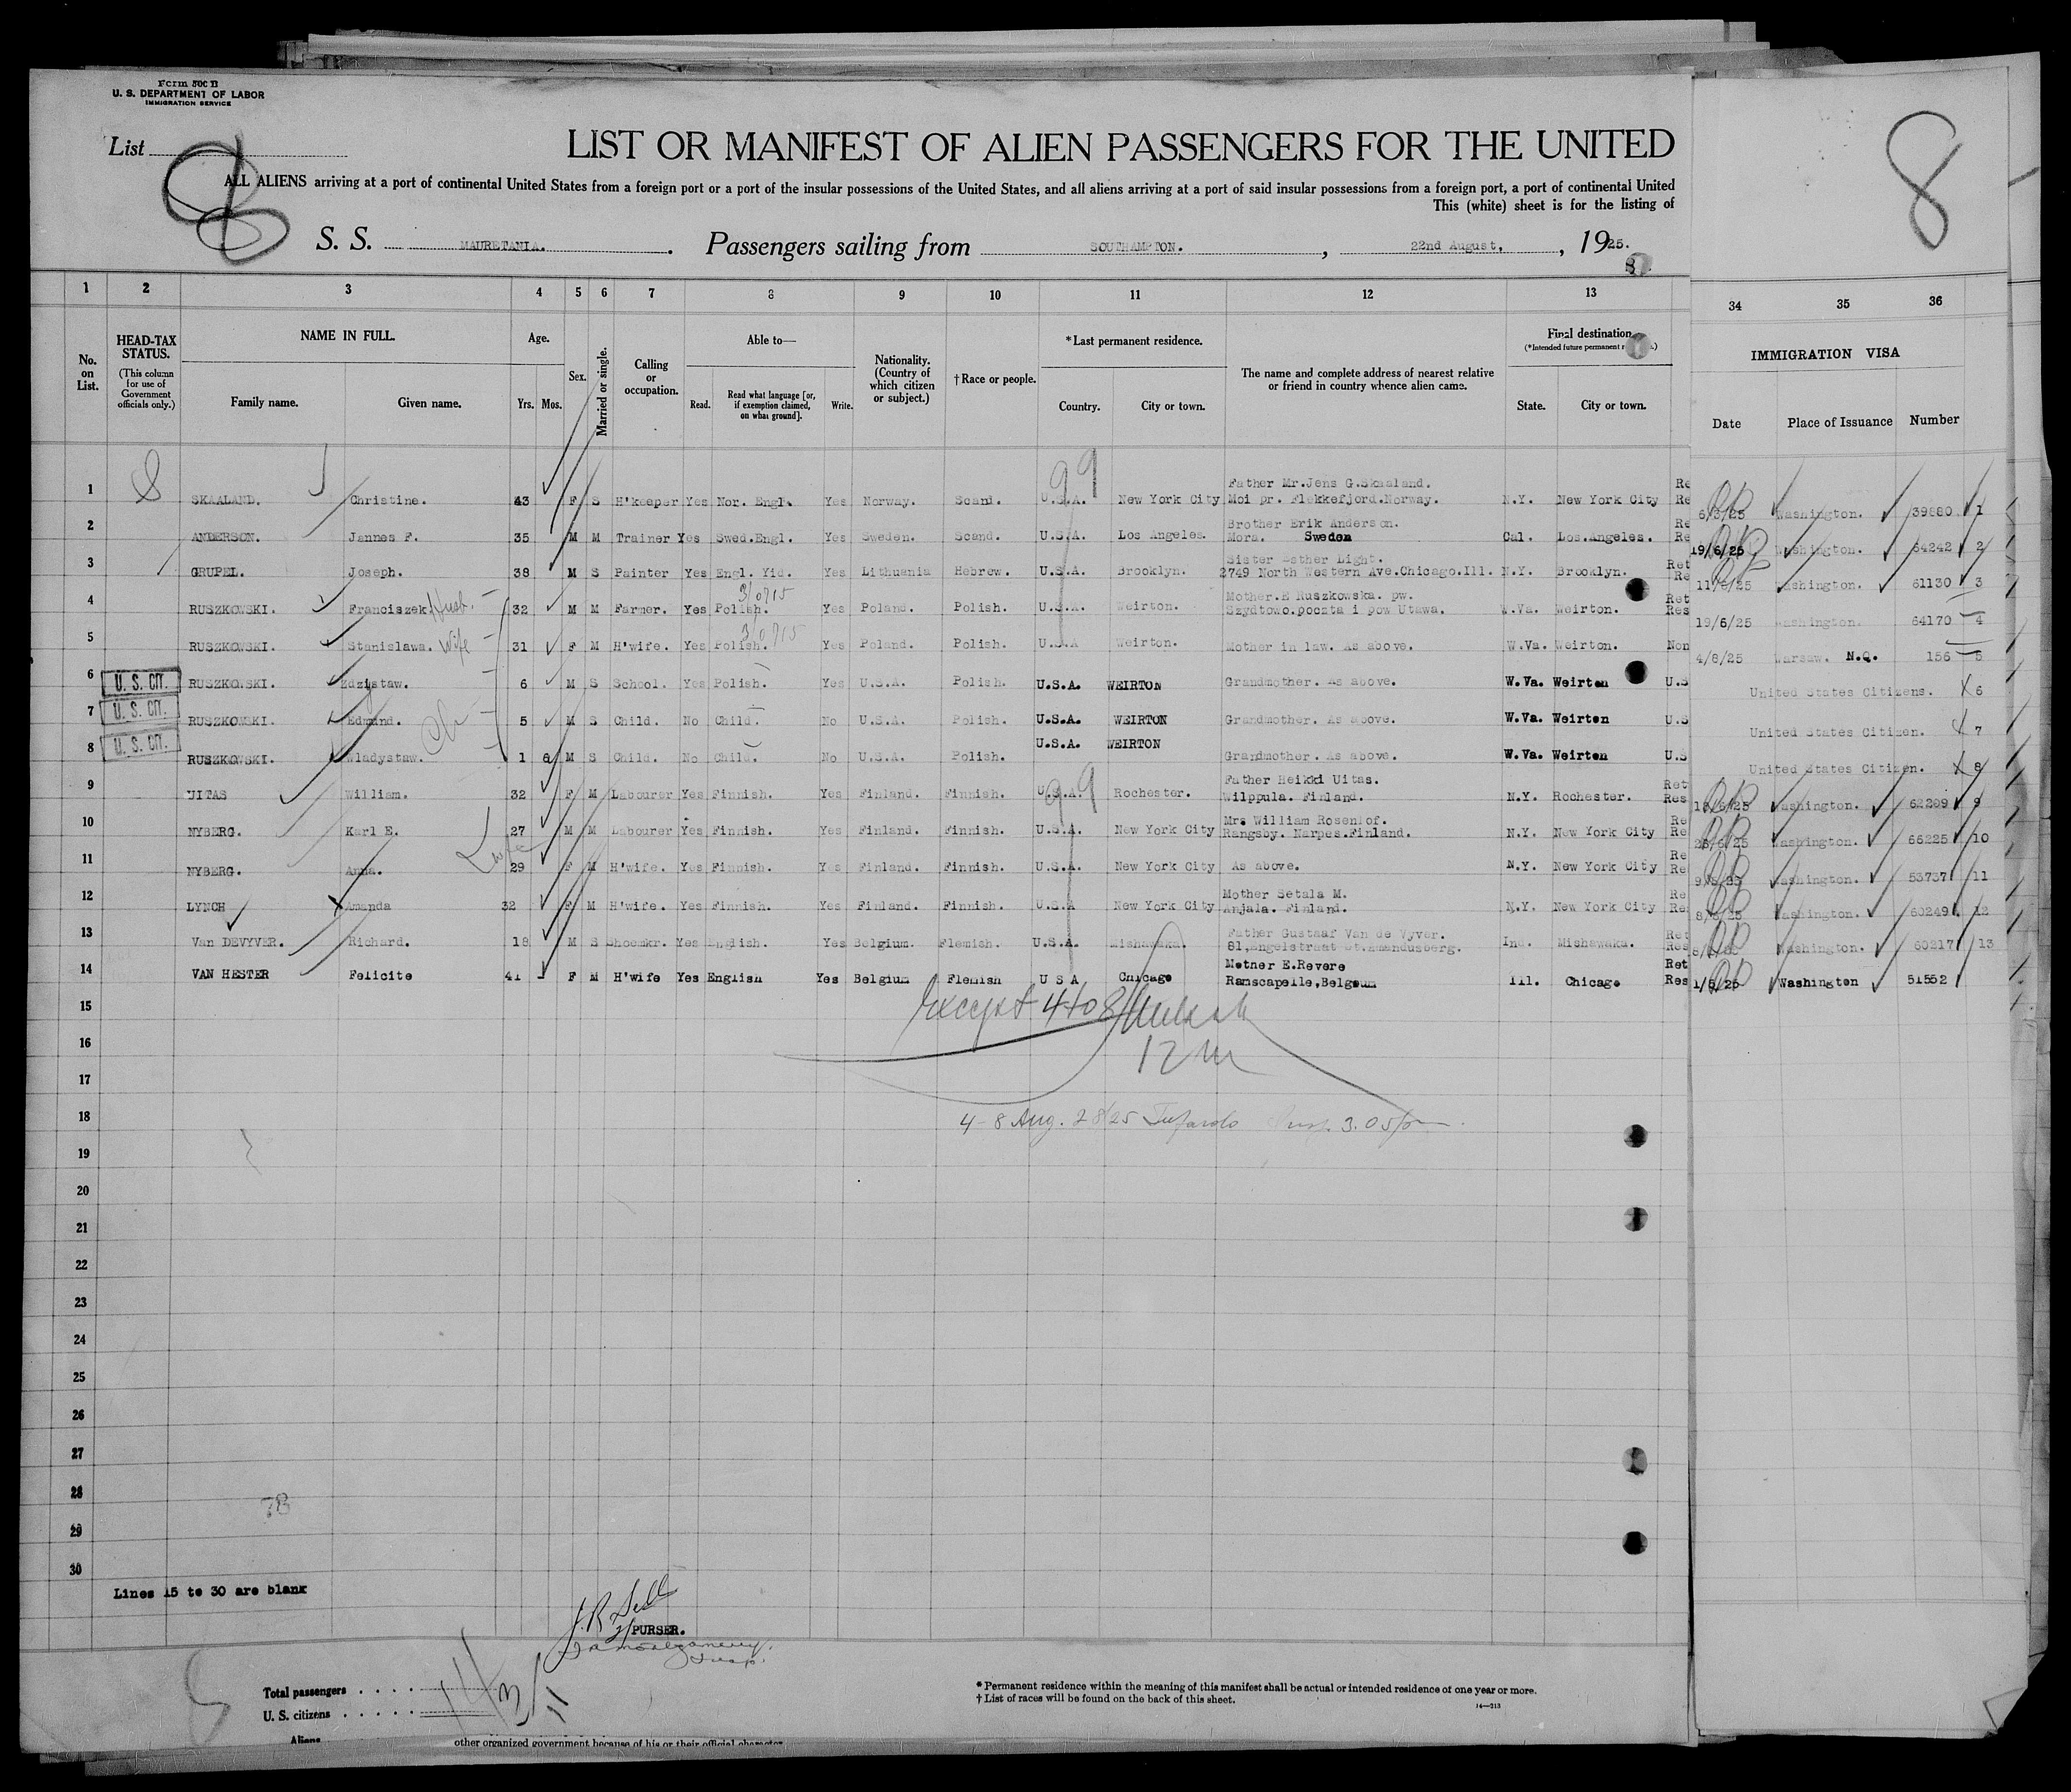 Form 500 B
U. S. DEPARTMENT OF LABOR
IMMIGRATION SERVICE
List 8
8
LIST OR MANIFEST OF ALIEN PASSENGERS FOR THE UNITED
ALL ALIENS arriving at a port of continental United States from a foreign port or a port of the insular possessions of the United States, and all aliens arriving at a port of said insular possessions from a foreign port, a port of continental United
This (white) sheet is for the listing of
S. S. MAURETANIA. Passengers sailing from SOUTHAMPTON. , 22nd August, , 1925.
1 2 3 4 5 6 7 8 9 10 11 12 13 34 35 36
No. on List. HEAD-TAX STATUS. (This column for use of Government officials only.) NAME IN FULL. Family name. Given name. Age. Yrs. Mos. Sex. Married or single. Calling or occupation. Able to— Read. Read what language [or, if exemption claimed, on what ground]. Write. Nationality. (Country of which citizen or subject.) †Race or people. *Last permanent residence. Country. City or town. The name and complete address of nearest relative or friend in country whence alien came. Final destination. (*Intended future permanent State. City or town. IMMIGRATION VISA Date Place of Issuance Number
Father Mr.Jens G.Skaaland. Re
1 SKAALAND. Christine. 43 F S H'keeper Yes Nor. Engl. Yes Norway. Scand. U.S.A. New York City Moi pr. Flekkefjord.Norway. N.Y. New York City Re 6/3/25 Washington. 39880 1
Brother Erik Anderson. Re
2 ANDERSON. Jannes F. 35 M M Trainer Yes Swed.Engl. Yes Sweden. Scand. U.S.A. Los Angeles. Mora. Sweden Cal. Los.Angeles. Re 19/6/25 Washington. 64242 2
Sister Esther Light. Ret
3 GRUPEL. Joseph. 38 M S Painter Yes Engl. Yid. Yes Lithuania Hebrew. U.S.A. Brooklyn. 2749 North Western Ave.Chicago.Ill. N.Y. Brooklyn. Re 11/6/25 Washington. 61130 3
Mother.E Ruszkowska. pw. Ret
4 RUSZKOWSKI. Franciszek Husb. 32 M M Farmer. Yes Polish. Yes Poland. Polish. U.S.A. Weirton. Szydtowo.poczta i pow Utawa. W.Va. Weirton. Res 19/6/25 Washington. 64170 4
5 RUSZKOWSKI. Stanislawa. Wife 31 F M H'wife. Yes Polish. Yes Poland. Polish. U.S.A Weirton. Mother in law. As above. W.Va. Weirton. Non 4/8/25 Warsaw. N.Q. 156 5
6 U. S. CIT. RUSZKOWSKI. Edzistaw. 6 M S School. Yes Polish. Yes U.S.A. Polish. U.S.A. WEIRTON Grandmother. As above. W.Va. Weirton U.S United States Citizens. 6
7 U. S. CIT. RUSZKOWSKI. Edmund. 5 M S Child. No Child. No U.S.A. Polish. U.S.A. WEIRTON Grandmother. As above. W.Va. Weirton U.S United States Citizen. 7
8 U. S. CIT. RUSZKOWSKI. Wladystaw. 1 8 M S Child. No Child. No U.S.A. Polish. U.S.A. WEIRTON Grandmother. As above. W.Va. Weirton U.S United States Citizen. 8
Father Heikki Uitas. Ret
9 UITAS William. 32 F M Labourer Yes Finnish. Yes Finland. Finnish. U.S.A. Rochester. Wilppula. Finland. N.Y. Rochester. Res Washington. 62209 9
Mrs William Rosenlof. Re
10 NYBERG. Karl E. 27 M M Labourer Yes Finnish. Yes Finland. Finnish. U.S.A. New York City Rangsby. Narpes.Finland. N.Y. New York City Re 25/6/25 Washington. 66225 10
11 NYBERG. Anna. 29 F M H'wife. Yes Finnish. Yes Finland. Finnish. U.S.A New York City As above. N.Y. New York City Re Washington. 53737 11
Mother Setala M. Re
12 LYNCH Amanda 32 F M H'wife. Yes Finnish. Yes Finland. Finnish. U.S.A New York City Anjala. Finland. N.Y. New York City Re Washington. 60249 12
Father Gustaaf Van de Vyver. Ret
13 Van DEVYVER. Richard. 18 M S Shoemkr. Yes English. Yes Belgium. Flemish. U.S.A. Mishawaka. 81,Engelstraat St.Amandusberg. Ind. Mishawaka. Res Washington. 60217 13
Mother E.Revere Ret
14 VAN HESTER Felicite 41 F M H'wife Yes English Yes Belgium Flemish U S A Chicago Ranscapelle,Belgium Ill. Chicago Res 1/5/25 Washington 51552
15 Except 4 to 8
16 12 m
17
18 4-8 Aug. 28/25 3.05 pm
19
20
21
22
23
24
25
26
27
28
29
30
Lines 15 to 30 are blank
PURSER.
Total passengers . . . . 14
U. S. citizens . . . . . 3
Aliens 11
* Permanent residence within the meaning of this manifest shall be actual or intended residence of one year or more.
† List of races will be found on the back of this sheet.
14—213
other organized government because of his or their official character